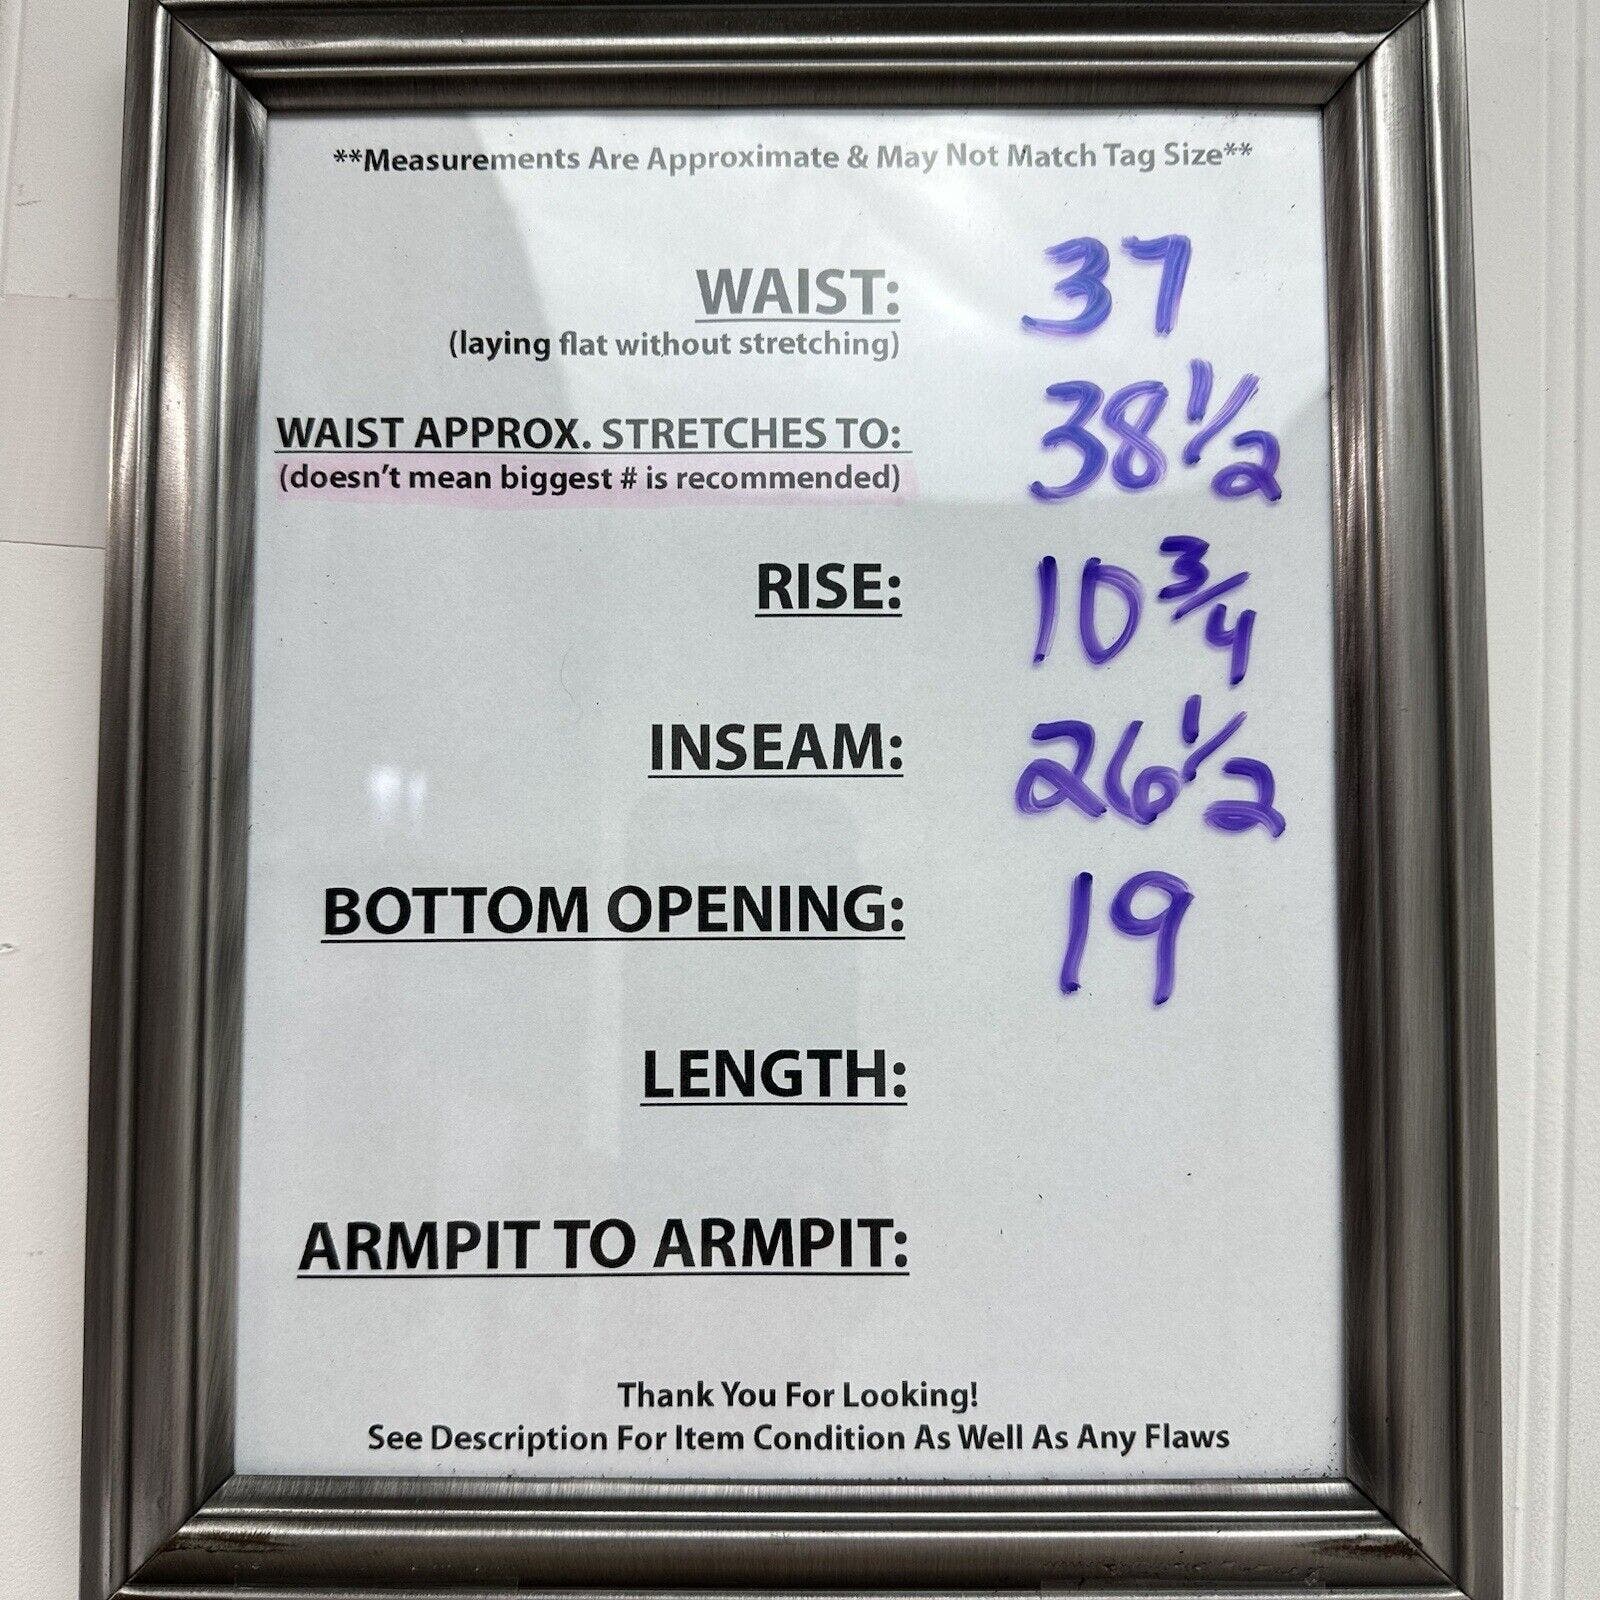 **Measurements Are Approximate & May Not Match Tag Size**
WAIST: 37
(laying flat without stretching)
WAIST APPROX. STRETCHES TO: 38 1/2
(doesn't mean biggest # is recommended)
RISE: 10 3/4
INSEAM: 26 1/2
BOTTOM OPENING: 19
LENGTH:
ARMPIT TO ARMPIT:
Thank You For Looking!
See Description For Item Condition As Well As Any Flaws